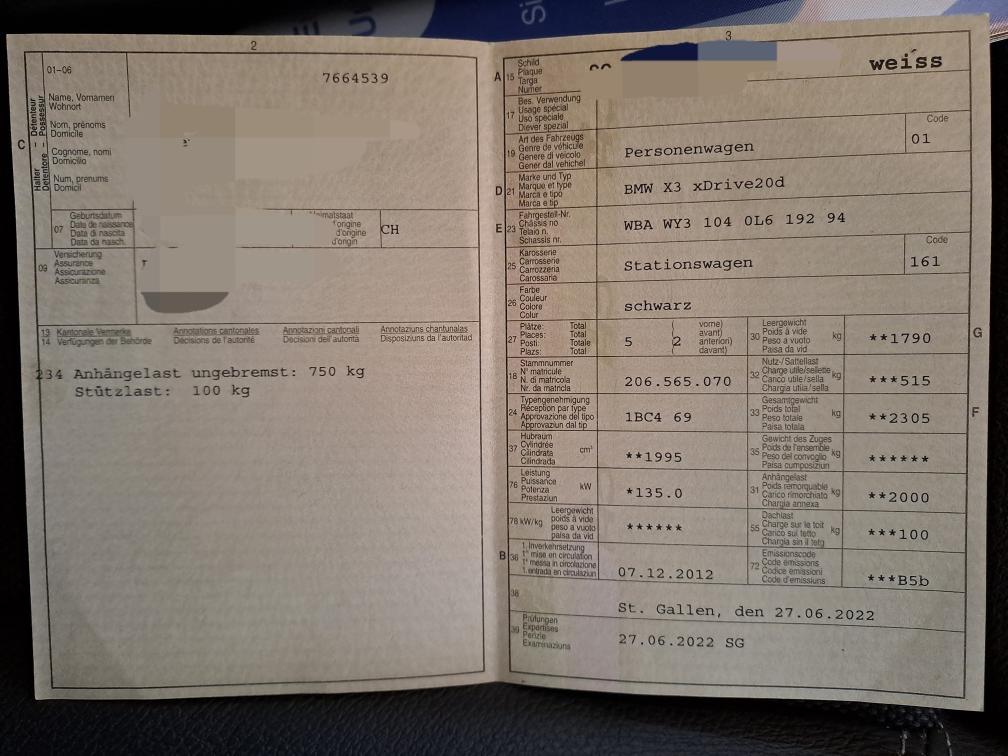 2
01-06
7664539
Name, Vornamen
Wohnort
Nom, prénoms
Domicile
Cognome, nomi
Domicilio
Num, prenums
Domicil
C
Halter Détenteur
Detentore Possessur
07
Geburtsdatum
Date de naissance
Data di nascita
Data da nasch.
Heimatstaat
d'origine
d'origine
d'origin
CH
09
Versicherung
Assurance
Assicurazione
Assicuranza
13 Kantonale Vermerke Annotations cantonales Annotazioni cantonali Annotaziuns chantunalas
14 Verfügungen der Behörde Décisions de l'autorité Decisioni dell'autorità Disposiziuns da l'autoritad
234 Anhängelast ungebremst: 750 kg
Stützlast: 100 kg
3
A 15
Schild
Plaque
Targa
Numer
weiss
17
Bes. Verwendung
Usage spécial
Uso speciale
Diever spezial
19
Art des Fahrzeugs
Genre de véhicule
Genere di veicolo
Gener dal vehichel
Personenwagen
Code
01
D 21
Marke und Typ
Marque et type
Marca e tipo
Marca e tip
BMW X3 xDrive20d
E 23
Fahrgestell-Nr.
Châssis no
Telaio n.
Schassis nr.
WBA WY3 104 0L6 192 94
25
Karosserie
Carrosserie
Carrozzeria
Carossaria
Stationswagen
Code
161
26
Farbe
Couleur
Colore
Colur
schwarz
27
Plätze: Total
Places: Total
Posti: Totale
Plazs: Total
5
( vorne)
avant)
anteriori)
( davant)
2
30
Leergewicht
Poids à vide
Peso a vuoto
Paisa da vid
kg
**1790
G
18
Stammnummer
N° matricule
N. di matricola
Nr. da matricla
206.565.070
32
Nutz-/Sattellast
Charge utile/sellette
Carico utile/sella
Chargia utila/sella
kg
***515
24
Typengenehmigung
Réception par type
Approvazione del tipo
Approvaziun dal tip
1BC4 69
33
Gesamtgewicht
Poids total
Peso totale
Paisa totala
kg
**2305
F
37
Hubraum
Cylindrée
Cilindrata
Cilindrada
cm³
**1995
35
Gewicht des Zuges
Poids de l'ensemble
Peso del convoglio
Paisa cumposiziun
kg
******
76
Leistung
Puissance
Potenza
Prestaziun
kW
*135.0
31
Anhängelast
Poids remorquable
Carico rimorchiato
Chargia annexa
kg
**2000
78 kW/kg
Leergewicht
poids à vide
peso a vuoto
paisa da vid
******
55
Dachlast
Charge sur le toit
Carico sul tetto
Chargia sin il tetg
kg
***100
B 36
1. Inverkehrsetzung
1re mise en circulation
1a messa in circolazione
1. entrada en circulaziun
07.12.2012
72
Emissionscode
Code émissions
Codice emissioni
Code d'emissiuns
***B5b
38
St. Gallen, den 27.06.2022
39
Prüfungen
Expertises
Perizie
Examinaziuns
27.06.2022 SG